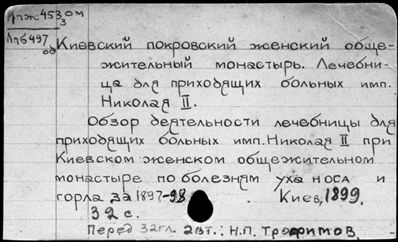 Лпж453 ом
3
Лп6497
об
Киевский покровский женский обще-
жительный монастырь. Лечебни-
ца для приходящих больных имп.
Николая II.
Обзор деятельности лечебницы для
приходящих больных имп. Николая II при
Киевском женском общежительном
монастыре по болезням уха носа и
горла за 1897-98 Киев, 1899.
32 с.
Перед загл. авт.: Н.П. Трофимов.